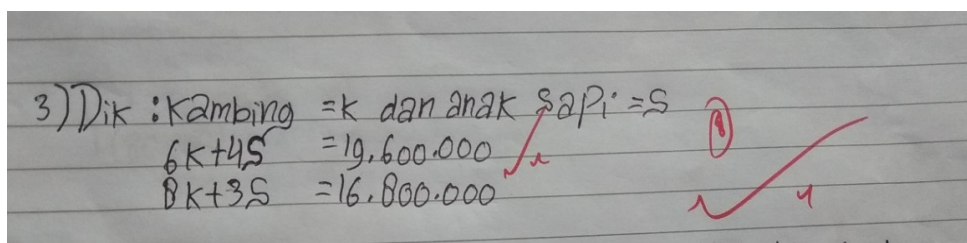 3) Dik : Kambing = k dan anak sapi = S
6k+4S = 19.600.000
8k+3S = 16.800.000